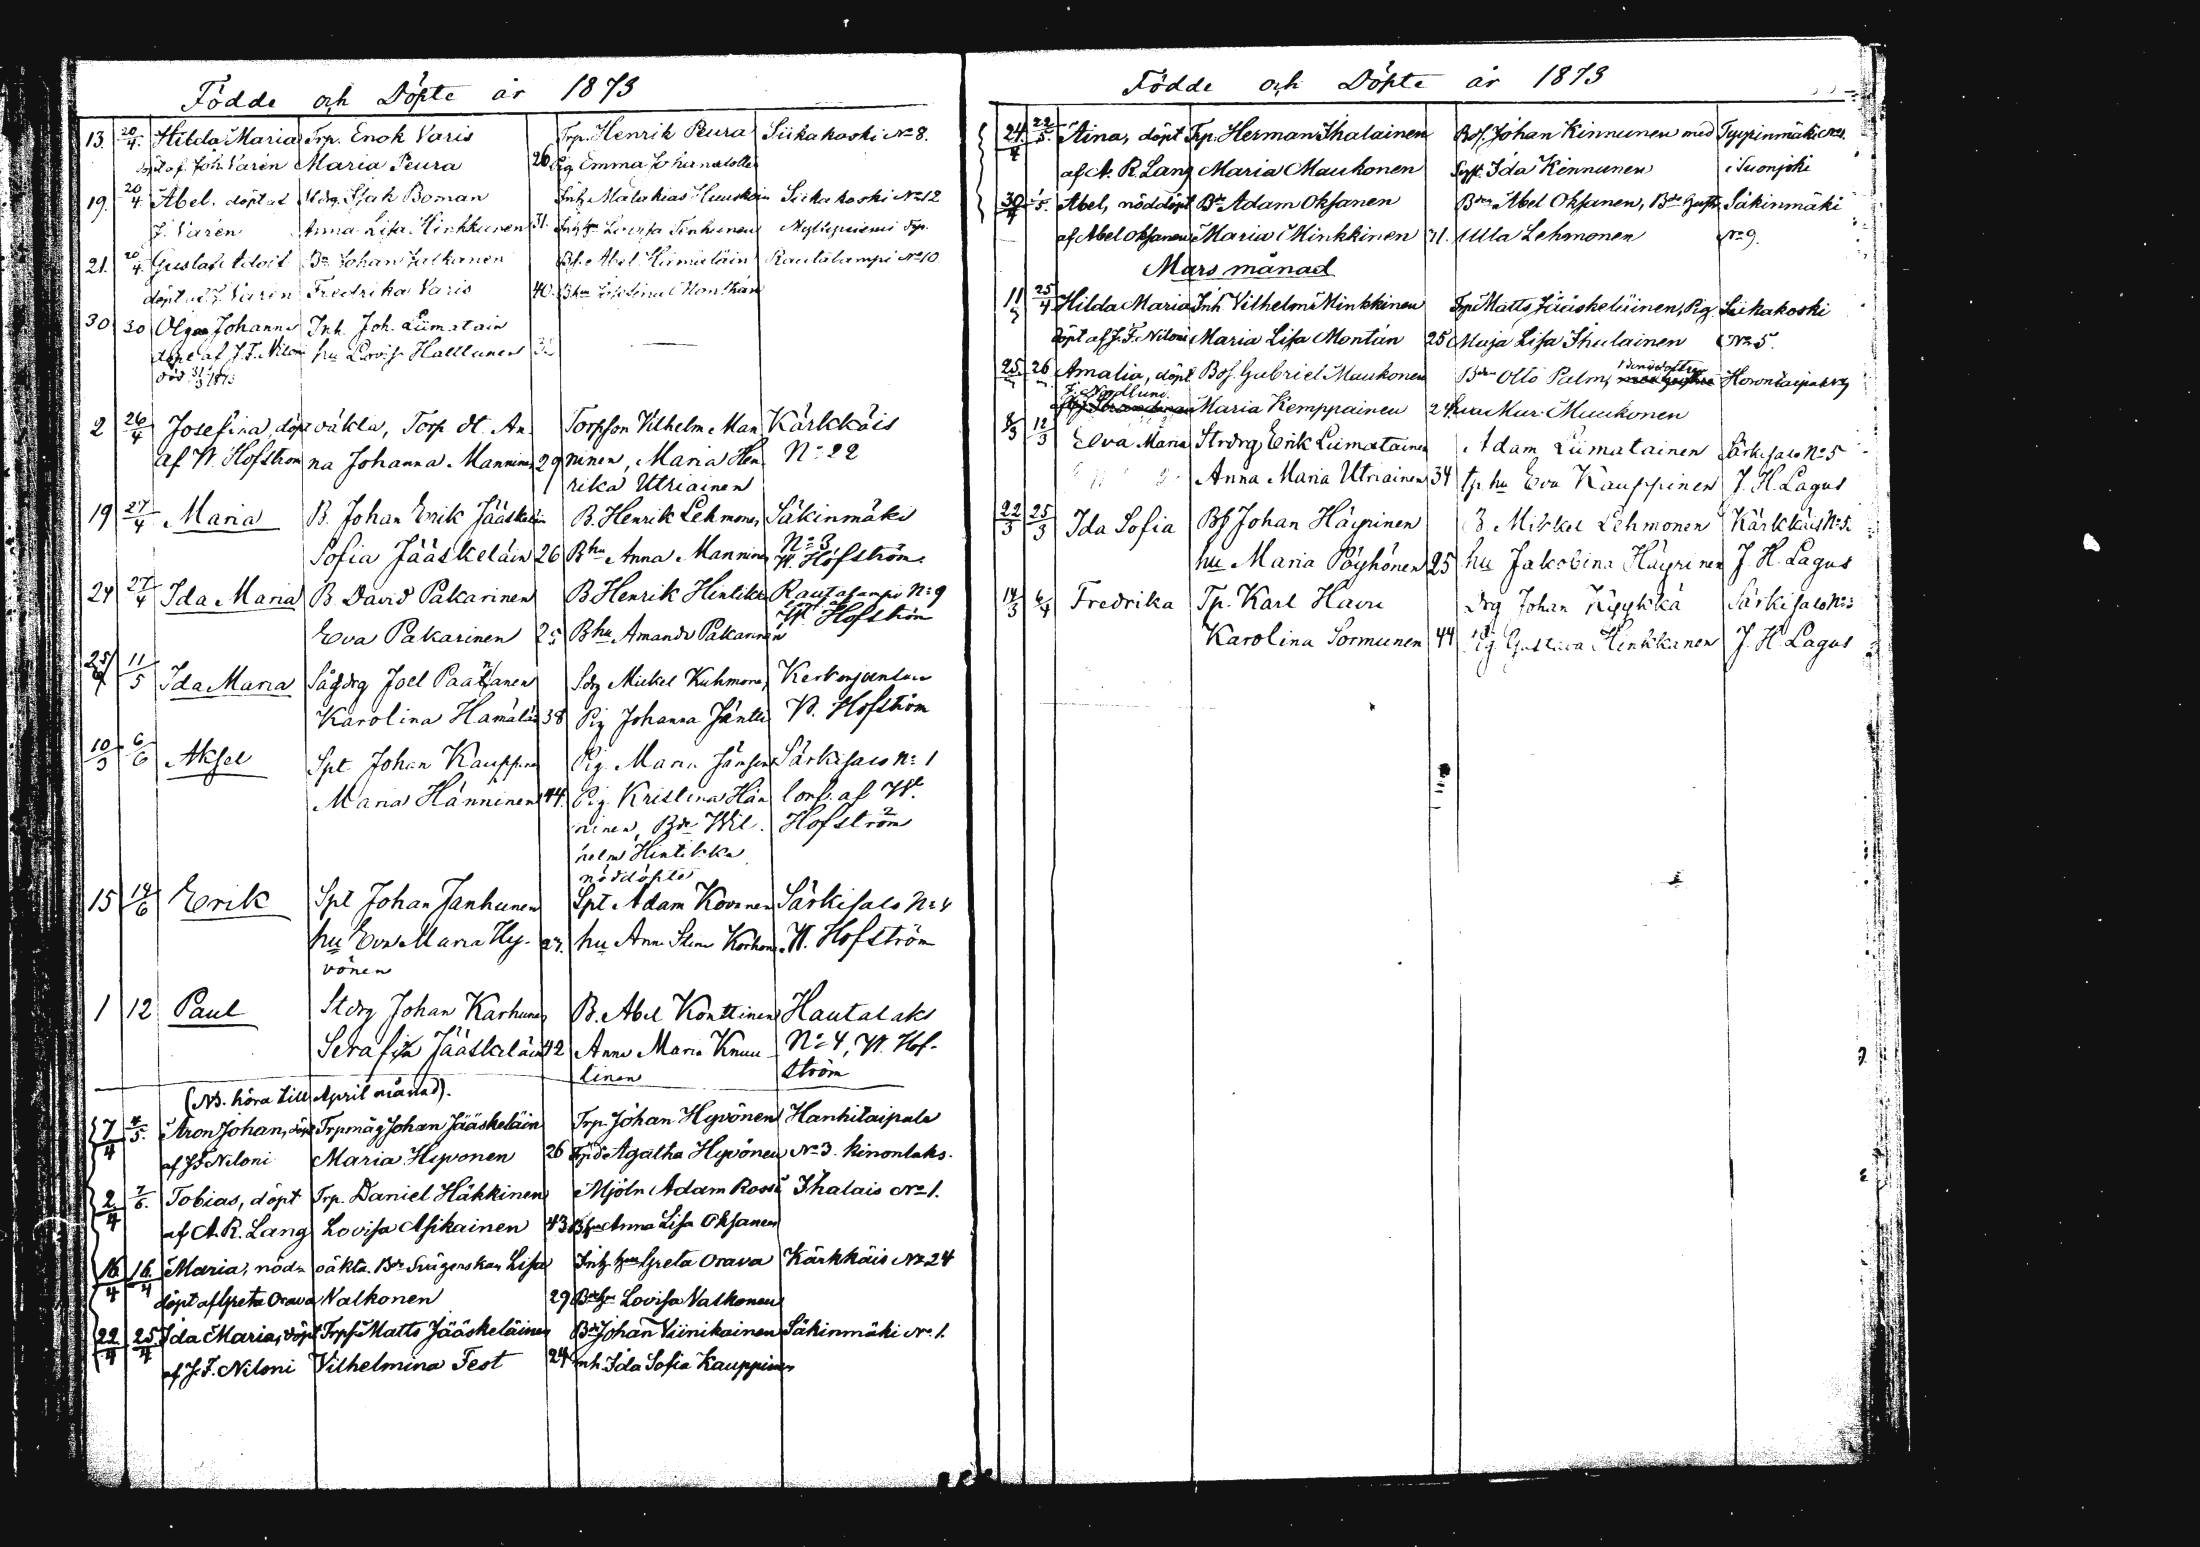 Födde och Döpte år 1873
13. 20/4. Hilda Maria Trp. Enok Varis Trp. Henrik Peura Siikakoski No 8.
döpt af Joh. Varén Maria Peura 26 Pig Emma
19. 20/4. Abel. döpt af Isak Boman Inh. Malakias Siikakoski No 12
J. Varén Anna Lisa Minkkunen 31. Lovisa
21. 20/4 Gustaf Adolf Br Johan Julkunen Bf. Abel Rautalampi No 10
döpt af J. Varén Fredrika Varis 40. Bhu
30 30 Olga Johanna Inh. Joh. Liimatain
döpt af J. F. Niloni hu Lovisa Halttunen
död 1873
2 26/4 Josefina, döpt oäkta, Torp dt. An- Torpson Vilhelm Man Kärkkäis
af W. Hofström na Johanna Manninen 29 ninen, Maria Hen No 22
rika Utriainen
19 27/4 Maria B. Johan Erik Jääskeläin B. Henrik Lehmonen Säkinmäki
Sofia Jääskeläin 26 Bhu Anna Manninen No 3
W. Hofström
24 27/4 Ida Maria B David Pakarinen B Henrik Rautalampi No 9
Eva Pakarinen 25 Bhu Amanda Pakarinen W. Hofström
25/4 11/5 Ida Maria Joel Paananen Mickel Kuhmonen
Karolina Hämäläin 38 Pig Johanna Jäntti W. Hofström
10/3 6/6 Aksel Spt Johan Kauppinen Pig. Maria Särkisalo No 1
Maria Hänninen 44. Pig. Kristina Hän conf. af W.
ninen, Bdr Wil- Hofström
helm Hintikka
nöddöpte
15 19/6 Erik Spt Johan Janhunen Spt Adam Kovanen Särkisalo No 4
hu Eva Maria Hy- 27. hu Anna Stina Korhonen W. Hofström
vönen
1 12 Paul Stdrg Johan Karhunen B. Abel Konttinen Hautalaks
Serafia Jääskeläin 42 Anna Maria Knuu- No 4, W. Hof-
tinen ström
(NB. höra till April månad).
7/4 4/5. Aron Johan, döpt Trpmåg Johan Jääskeläin Trp. Johan Hyvönen Hanhitaipale
af J F Niloni Maria Hyvonen 26 Agatha Hyvönen No 3. kinonlaks.
2/4 7/6. Tobias, döpt Trp. Daniel Häkkinen Mjöln Adam Rossi Ihalais No 1.
af A. R. Lang Lovisa Asikainen 43 Anna Lisa Oksanen
16/4 16/4 Maria, nöd- oäkta. Lisa Greta Orava Kärkkäis No 24
döpt af Greta Orava Valkonen 29 Lovisa Valkonen
22/4 25/4 Ida Maria, döpt Trps. Matts Jääskeläinen Bdr Johan Viinikainen Säkinmäki No 1.
af J. F. Niloni Vilhelmina Fest 24 inh. Ida Sofia Kauppinen
Födde och Döpte år 1873
24/4 22/5. Aina, döpt Trp. Herman Ihalainen Bof. Johan Kinnunen med Tyyinmäki
af A. R. Lang Maria Maukonen Ida Kinnunen i Suonjoki
30/4 Abel, nöddöpt Br Adam Oksanen Abel Oksanen, Säkinmäki
af Abel Oksanen Maria Minkkinen 31. Ulla Lehmonen No 9.
Mars månad
11/3 25/4 Hilda Maria Inh Vilhelm Minkkinen Trp Matts Jääskeläinen, Pig Siikakoski
döpt af J. F. Niloni Maria Lisa Montin 25 Maja Lisa Ihalainen No 5.
25. 26 Amalia, döpt Bof. Gabriel Muukonen Otto Palm,
F. Nordlund. Maria Kemppainen 24 Muukonen
8/3 12/3 Elva Maria Strdrg Erik Liimatainen Adam Liimatainen Särkisalo No 5
Anna Maria Utriainen 34 tp hu Eva Kauppinen J. H. Lagus
22/3 25/3 Ida Sofia Bf Johan Häyrinen B. Mikkel Lehmonen Kärkkäis No 5.
hu Maria Pöyhönen 25 hu Jakobina Häyrinen J. H. Lagus
14/3 6/4 Fredrika Tp. Karl Havu Drg Johan Särkisalo No 3
Karolina Sormunen 44 Pig Gustava Hinkkanen J. H. Lagus